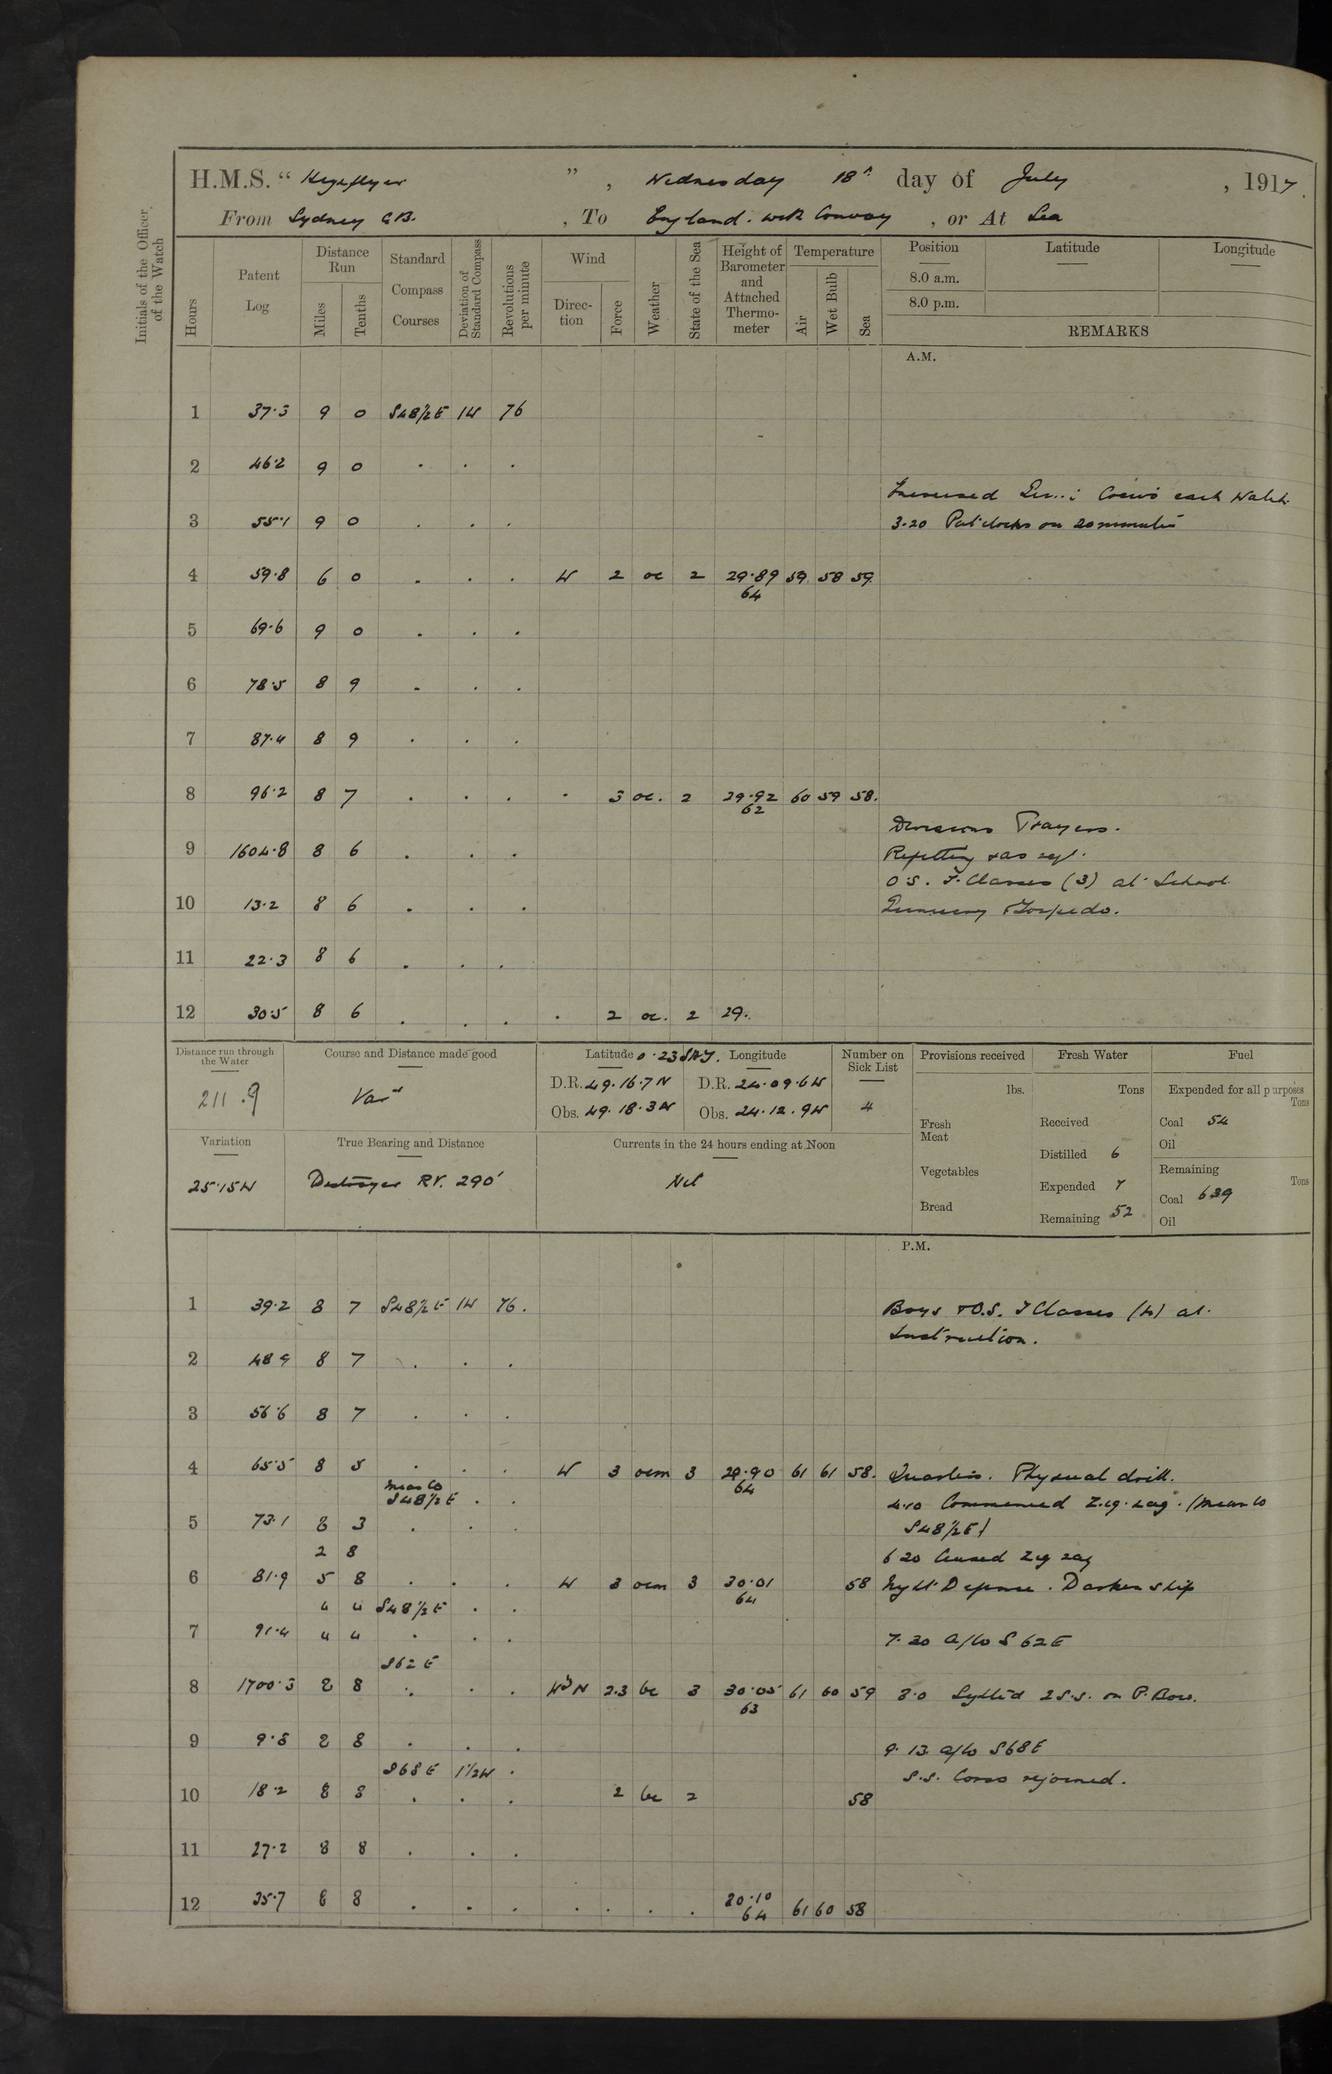 H.M.S. " Highflyer ", Wednesday 18th day of July, 1917.
From Sydney C.B., To England. with Convoy, or At Sea
Initials of the Officer of the Watch
Hours
Patent Log
Distance Run
Miles
Tenths
Standard Compass Courses
Deviation of Standard Compass
Revolutions per minute
Wind
Direction
Force
Weather
State of the Sea
Height of Barometer and Attached Thermometer
Temperature
Air
Wet Bulb
Sea
Position Latitude Longitude
8.0 a.m.
8.0 p.m.
REMARKS
A.M.
1 37.3 9 0 S48½E 1W 76
2 46.2 9 0 . . .
Crews each Watch.
3 55.1 9 0 . . . 3.20 Put clocks on 20 minutes
4 59.8 6 0 . . . W 2 oc 2 29.89 59 58 59.
64
5 69.6 9 0 . . .
6 78.5 8 9 . . .
7 87.4 8 9 . . .
8 96.2 8 7 . . . . 3 oc. 2 29.92 60 59 58.
62
Divisions Prayers.
9 1604.8 8 6 . . . Refitting &as reqd.
O.S. T. Classes (3) at School
10 13.2 8 6 . . . Gunnery &Torpedo.
11 22.3 8 6 . . .
12 30.5 8 6 . . . . 2 oc. 2 29.
Distance run through the Water
211.9
Course and Distance made good
Vars
Latitude Longitude
D.R. 49.16.7N D.R. 24.09.6W
Obs. 49.18.3N Obs. 24.12.9W
Number on Sick List
4
Variation
25.15W
True Bearing and Distance
Destroyer RV. 290'
Currents in the 24 hours ending at Noon
Nil
Provisions received
lbs.
Fresh Meat
Vegetables
Bread
Fresh Water
Tons
Received
Distilled 6
Expended 7
Remaining 52
Fuel
Expended for all purposes
Tons
Coal 54
Oil
Remaining
Tons
Coal 639
Oil
P.M.
1 39.2 8 7 S48½E 1W 76. Boys &O.S. T Classes (4) at
Instruction.
2 48 9 8 7 . . .
3 56.6 8 7 . . .
4 65.5 8 5 . . . W 3 ocm 3 29.90 61 61 58. Quarters. Physical drill.
64
mean Co
S48½E . . 4.10 Commenced Zig. zag. (Mean Co
5 73.1 8 3 . . . S48½E)
2 8 6 20 Ceased Zig zag
6 81.9 5 8 . . . W 3 ocm 3 30.01 58 Night Defence. Darken ship
64
4 4 S48½E . .
7 91.4 4 4 . . . 7.20 a/co S62E
S62E
8 1700.3 8 8 . . . WbyN 2.3 bc 3 30.05 61 60 59 8.0 Sighted 2 S.S. on P. Bow.
63
9 9.5 8 8 . . . 9.13 a/co S68E
S68E 1½W . S.S. Corso rejoined.
10 18.2 8 8 . . . 2 bc 2 58
11 27.2 8 8 . . .
12 35.7 8 8 . . . . . . . 30.10 61 60 58
64